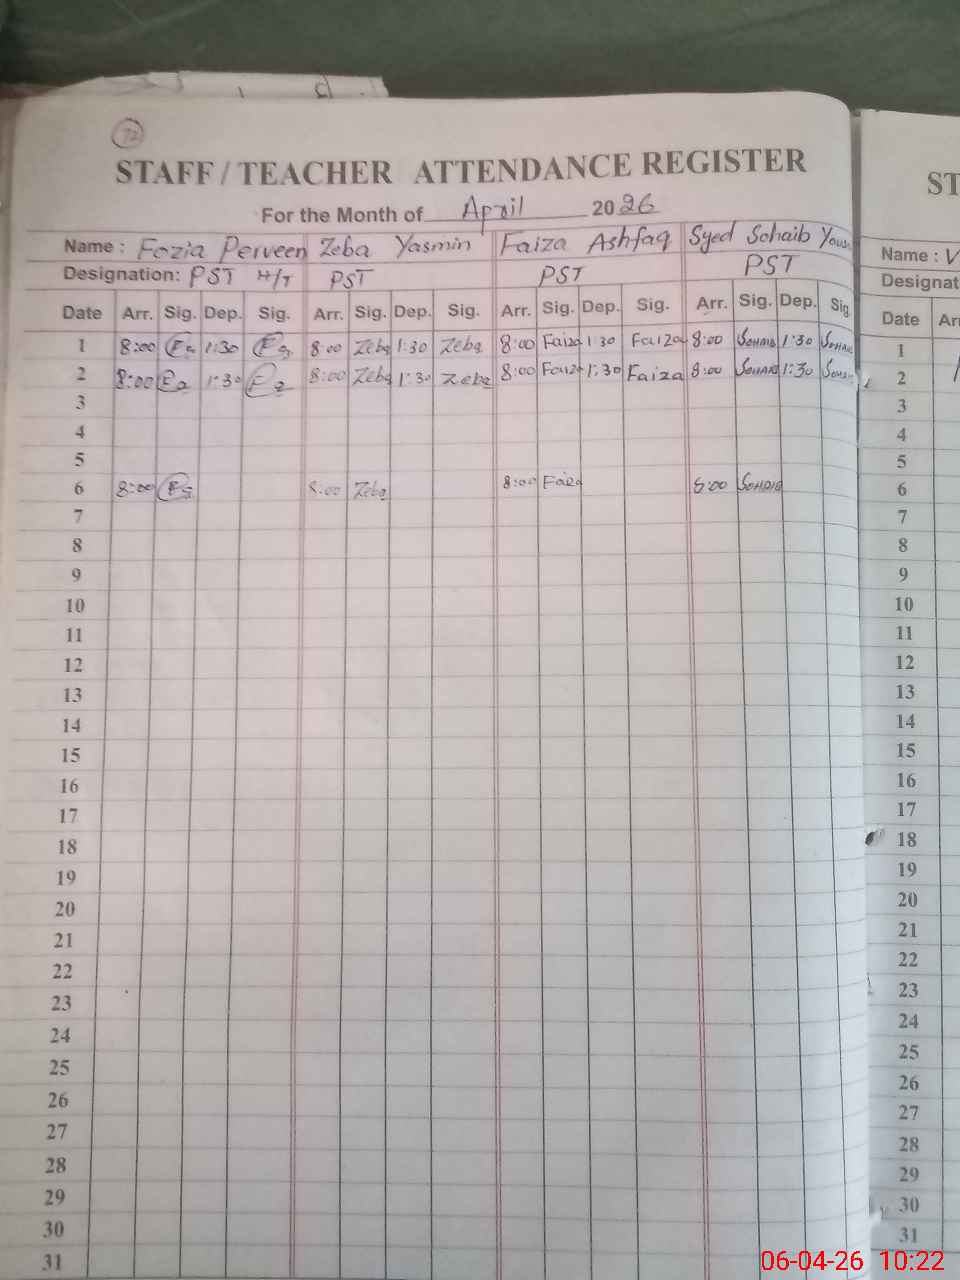 72
STAFF / TEACHER ATTENDANCE REGISTER
For the Month of April 2026
Name : Fozia Perveen Zeba Yasmin Faiza Ashfaq Syed Sohaib
Designation: PST H/T PST PST PST
Date Arr. Sig. Dep. Sig. Arr. Sig. Dep. Sig. Arr. Sig. Dep. Sig. Arr. Sig. Dep. Sig.
1 8:00 1:30 8:00 Zeba 1:30 Zeba 8:00 Faiza 1:30 Faiza 8:00 SOHAIB 1:30 SOHAIB
2 8:00 1:30 8:00 Zeba 1:30 Zeba 8:00 Faiza 1:30 Faiza 8:00 SOHAIB 1:30
3
4
5
6 8:00 8:00 Zeba 8:00 Faiza 8:00 SOHAIB
7
8
9
10
11
12
13
14
15
16
17
18
19
20
21
22
23
24
25
26
27
28
29
30
31
ST
Name :
Designat
Date Arr
1
2
3
4
5
6
7
8
9
10
11
12
13
14
15
16
17
18
19
20
21
22
23
24
25
26
27
28
29
30
31
06-04-26 10:22